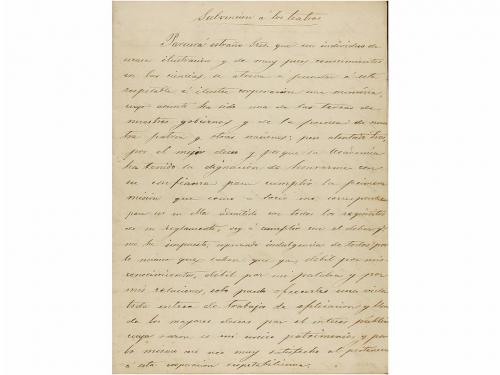 Subvencion á los teatros
Parecerá estraño Sres. que un individuo de
escasa ilustracion y de muy pocos conocimientos
en las ciencias, se atreva a presentar á esta
respetable é ilustre corporacion una memoria,
cuyo asunto ha sido una de las tareas de
nuestros gobiernos y de la prensa de nues
tra patria y otras naciones; pero alentado tan
por el mejor deseo y porque la Academia
ha tenido la dignacion de honrarme con
su confianza para cumplir la primera
mision que como á socio me corresponde
por ser en ella admitido con todos los requisitos
de su reglamento, voy á cumplir con el deber q.
me ha impuesto, esperando indulgencia de todos por
lo mismo que saben que yo, debil por mis
conocimientos, debil por mi palabra y por
mis relaciones, solo puedo ofrecerles una vida
toda entera de trabajo de aplicacion y llena
de los mayores deseos por el interes publico
cuya razon es mi unico patrimonio, y por
lo mismo me veo muy satisfecho al pertenecer
á esta corporacion respetabilisima.